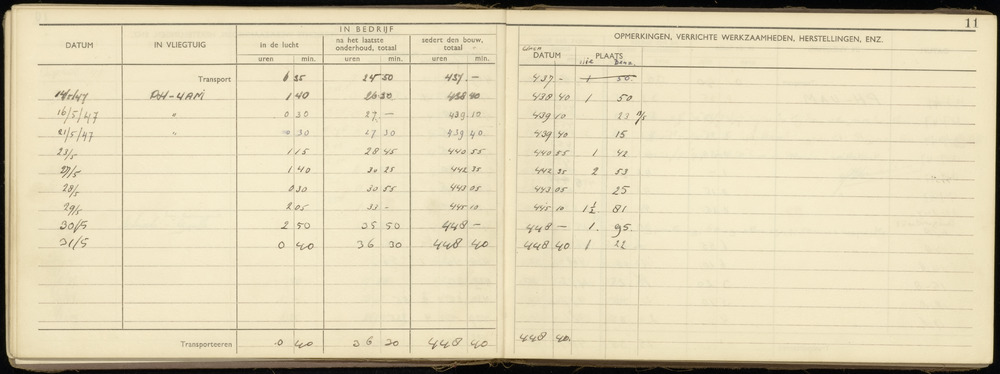 11
IN BEDRIJF
DATUM IN VLIEGTUIG In de lucht na het laatste onderhoud, totaal sedert den bouw, totaal
uren min. uren min. uren min.
OPMERKINGEN, VERRICHTE WERKZAAMHEDEN, HERSTELLINGEN, ENZ.
uren DATUM PLAATS
Transport 6 35 24 50 437 - 437 - 1 50
14/5/47 PH-UAM 1 40 26 30 438 40 438 40 1 50
16/5/47 " 0 30 27 - 439 10 439 10 23
21/5/47 " 0 30 27 30 439 40 439 40 15
23/5 1 15 28 45 440 55 440 55 1 42
27/5 1 40 30 25 442 35 442 35 2 53
28/5 0 30 30 55 443 05 443 05 25
29/5 2 05 33 - 445 10 445 10 1½ 81
30/5 2 50 35 50 448 - 448 - 1 95
31/5 0 40 36 30 448 40 448 40 1 22
Transporteeren 0 40 36 30 448 40 448 40